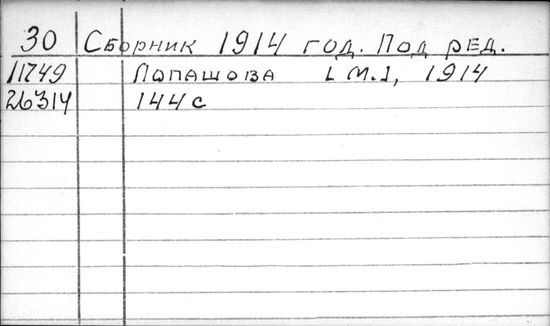 30 Сборник 1914 год. Под ред.
11749 Лопашова [М.], 1914
26314 144 с